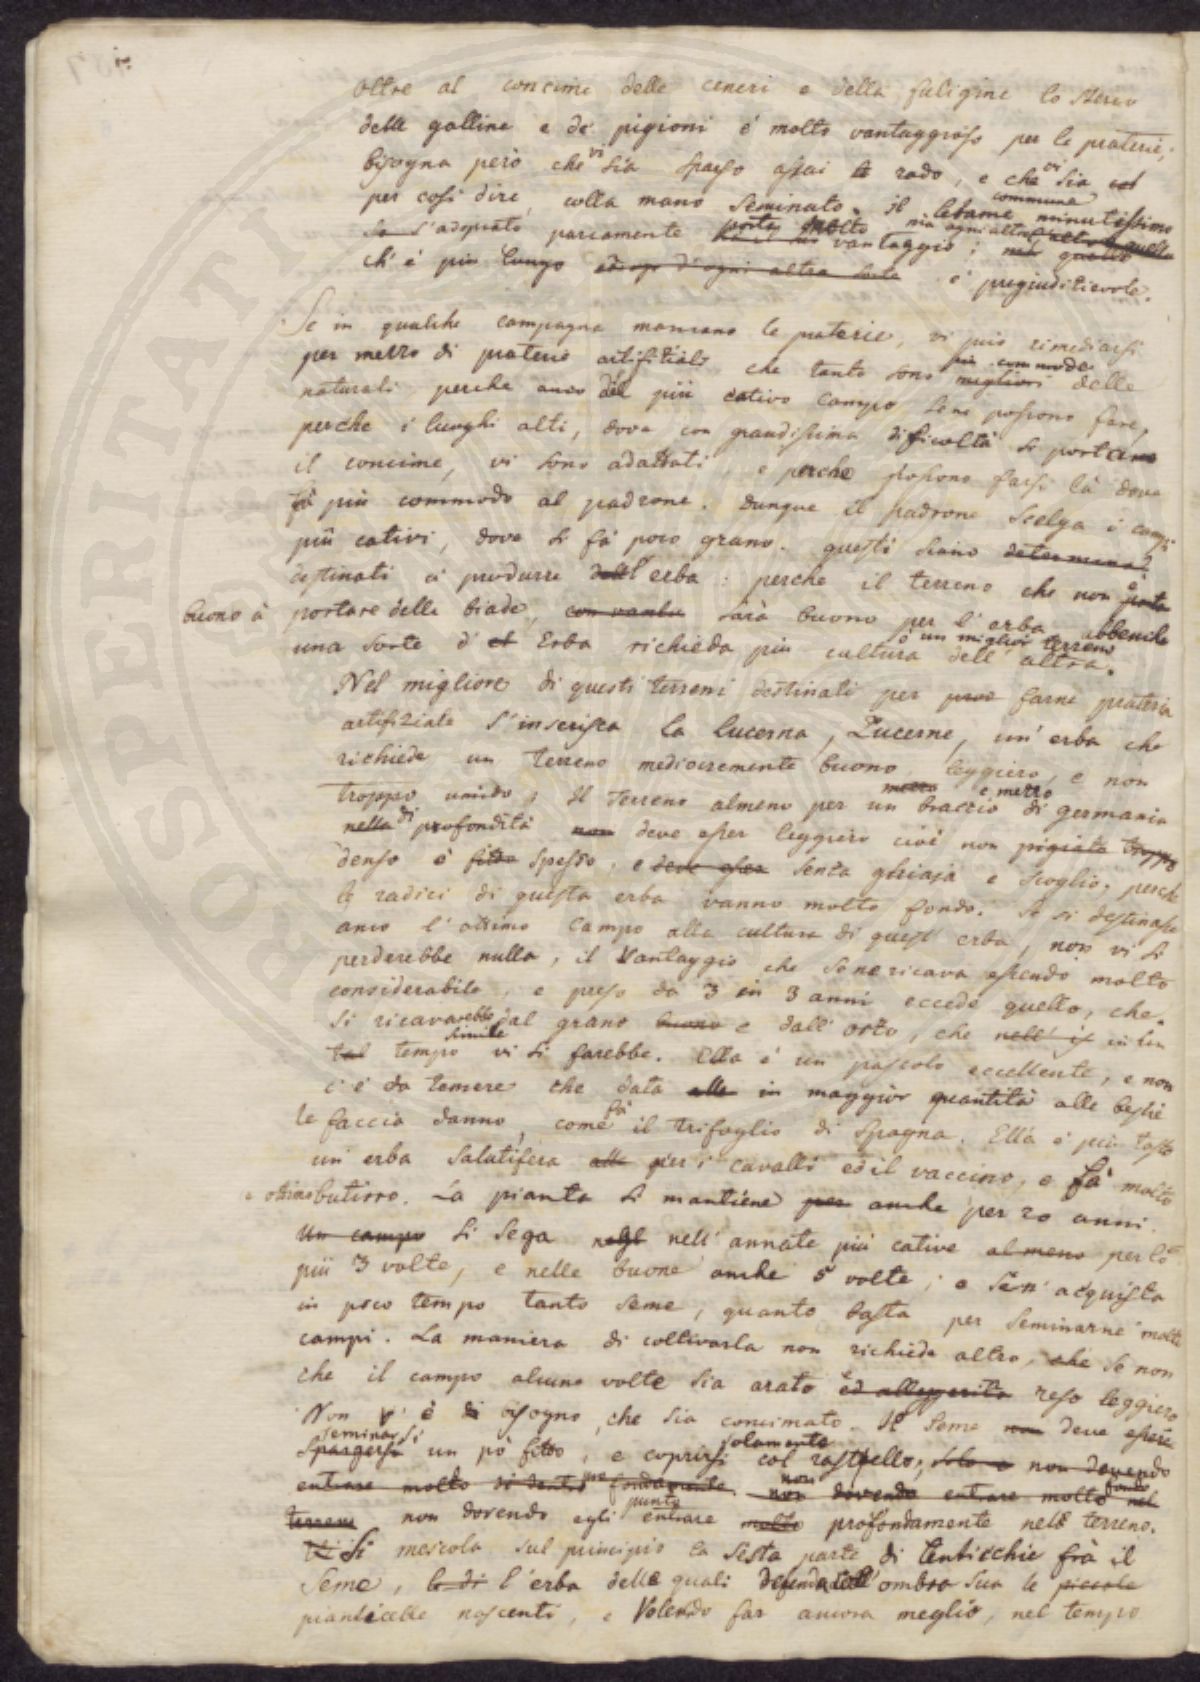 oltre al concime delle ceneri e della fuligine lo sterco
delle galline e de' pigioni é molto vantaggioso per le praterie;
bisogna però che vi sia sparso assai rado, e che vi sia
per cosi dire, colla mano seminato. Il letame commune minutissimo
s'adoprato parcamente porta molto vantaggio; ma ogni altro
ch' é più lungo ed ogni altra sorte é pregiuditievole.
Se in qualche campagna mancano le praterie, vi può rimediarsi
per mezzo di praterie artifitiali che tanto sono più commode migliori delle
naturali perche anco del più cativo campo sene possono fare,
perche i luoghi alti, dova con grandissima dificoltà si porta
il concime, vi sono adattati, e perche possono farsi là dove
fà più commodo al padrone. Dunque il padrone scelga i campi
più cativi, dove si fà poco grano. questi siano determinati
destinati a produrre l'erba: perche il terreno che non é
buono à portare delle biade, sarà buono per l'erba abbenche
una sorte d' Erba richieda più cultura o un miglior terreno dell' altra.
Nel migliore di questi terreni destinati per farne prateria
artifiziale s'inserisca la lucerna, Lucerne, un' erba che
richiede un terreno mediocremente buono leggiero, e non
troppo umido; Il terreno almeno per un braccio e mezzo di germania
nella di profondità non deve esser leggiero cioè non pigiato troppo
denso é fitto spesso, e deve esser senza ghiaja e scoglio, perche
le radici di questa erba vanno molto fondo. Se si destinasse
anco l'ottimo campo alla cultura di quest' erba, non vi si
perderebbe nulla, il vantaggio che sene ricava essendo molto
considerabile, e preso da 3 in 3 anni eccede quello, che
si ricavarebbe dal grano buono e dall' orzo, che in un
tal simile tempo vi si farebbe. Ella é un pascolo eccellente, e non
c'é da temere che data alle in maggior quantità alle bestie
le faccia danno, come fà il trifoglio di Spagna. Ella é più tosto
un erba salutifera alli per i cavalli ed il vaccino, e fà molto
e ottimo butirro. La pianta si mantiene per anche per 20 anni.
Un campo si sega negl nell' annate più cative al meno per lo
più 3 volte, e nelle buone anche 5 volte; e sen' acquista
in poco tempo tanto seme, quanto basta per seminarne molti
campi. La maniera di coltivarla non richiede altro, che se non
che il campo alcune volte sia arato é ed alleggerito reso leggiero
Non v' é di bisogno, che sia concimato. Il seme non deve essere
seminarsi Spargersi un pò fitto, e coprirsi solamente col rastrello, solo e non dovendo
entrare molto di dentro profondamente. non dovendo entrare molto fondo nel
terreno non dovendo egli punto entrare molto profondamente nell terreno.
Si mescola sul principio la sesta parte di lenticchie frà il
seme, l'erba delle quali defenda coll' ombra sua le piccole
pianticelle nascenti, e volendo far ancora meglio, nel tempo